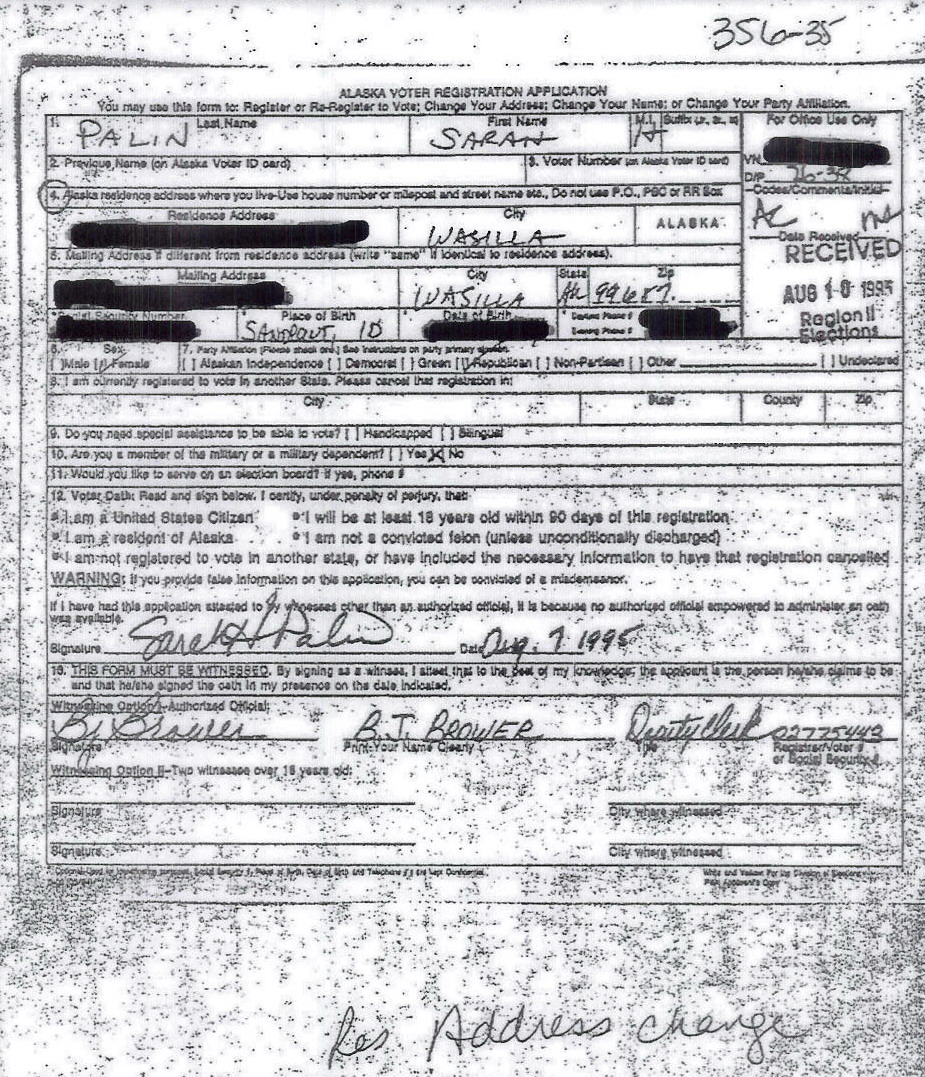 356-35
ALASKA VOTER REGISTRATION APPLICATION
You may use this form to: Register or Re-Register to Vote; Change Your Address; Change Your Name; or Change Your Party Affiliation.
1. Last Name First Name M.I. Suffix (Jr., Sr., III) For Office Use Only
PALIN SARAH H
2. Previous Name (on Alaska Voter ID card) 3. Voter Number (on Alaska Voter ID card) VN
D/P
4. Alaska residence address where you live-Use house number or milepost and street name etc., Do not use P.O., PSC or RR Box Codes/Comments/Initial
Residence Address City ALASKA
WASILLA
Date Received
5. Mailing Address if different from residence address (write "same" if identical to residence address). RECEIVED
Mailing Address City State Zip
WASILLA AK 99687
AUG 10 1995
Social Security Number Place of Birth Date of Birth Daytime Phone # Region II
SANDPOINT, ID Evening Phone # Elections
6. Sex 7. Party Affiliation (Please check one.) See instructions on party primary
[ ] Male [✓] Female [ ] Alaskan Independence [ ] Democrat [ ] Green [✓] Republican [ ] Non-Partisan [ ] Other [ ] Undeclared
8. I am currently registered to vote in another State. Please cancel that registration in:
City State County Zip
9. Do you need special assistance to be able to vote? [ ] Handicapped [ ] Bilingual
10. Are you a member of the military or a military dependent? [ ] Yes [X] No
11. Would you like to serve on an election board? If yes, phone #
12. Voter Oath: Read and sign below. I certify, under penalty of perjury, that:
* I am a United States Citizen * I will be at least 18 years old within 90 days of this registration
* I am a resident of Alaska * I am not a convicted felon (unless unconditionally discharged)
* I am not registered to vote in another state, or have included the necessary information to have that registration cancelled
WARNING: If you provide false information on this application, you can be convicted of a misdemeanor.
If I have had this application attested to by witnesses other than an authorized official, it is because no authorized official empowered to administer an oath
was available.
Signature Sarah H Palin Date Aug. 7 1995
13. THIS FORM MUST BE WITNESSED. By signing as a witness, I attest that to the best of my knowledge; the applicant is the person he/she claims to be
and that he/she signed the oath in my presence on the date indicated.
Witnessing Option I-Authorized Official:
BJ Brower B.J. BROWER Deputy Clerk 02775443
Signature Print Your Name Clearly Title Registrar/Voter #
or Social Security #
Witnessing Option II-Two witnesses over 18 years old:
Signature City where witnessed
Signature City where witnessed
Res Address change